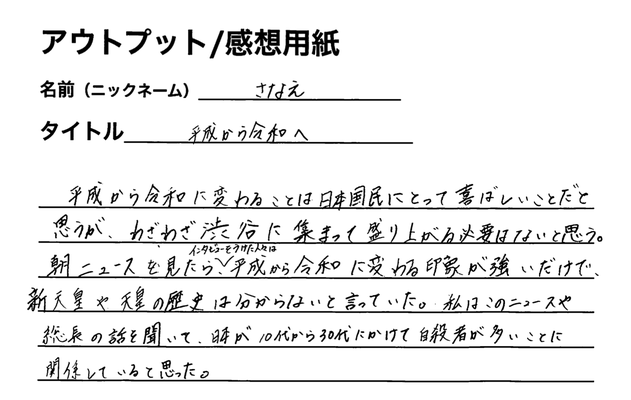 アウトプット/感想用紙
名前（ニックネーム） さなえ
タイトル 平成から令和へ
平成から令和に変わることは日本国民にとって喜ばしいことだと
思うが、わざわざ渋谷に集まって盛り上がる必要はないと思う。
インタビューをうけた人々は
朝ニュースを見たら、平成から令和に変わる印象が強いだけで、
新天皇や天皇の歴史は分からないと言っていた。私はこのニュースや
総長の話を聞いて、日本が10代から30代にかけて自殺者が多いことに
関係していると思った。